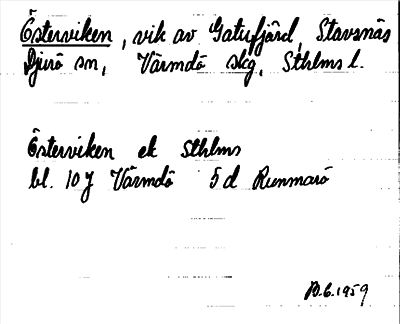 Österviken, vik av Gatufjärd, Stavsnäs
Djurö sn, Värmdö skg, Sthlms l.
Österviken ek Sthlms
bl. 10 J Värmdö 5 d Runmarö
6.1959